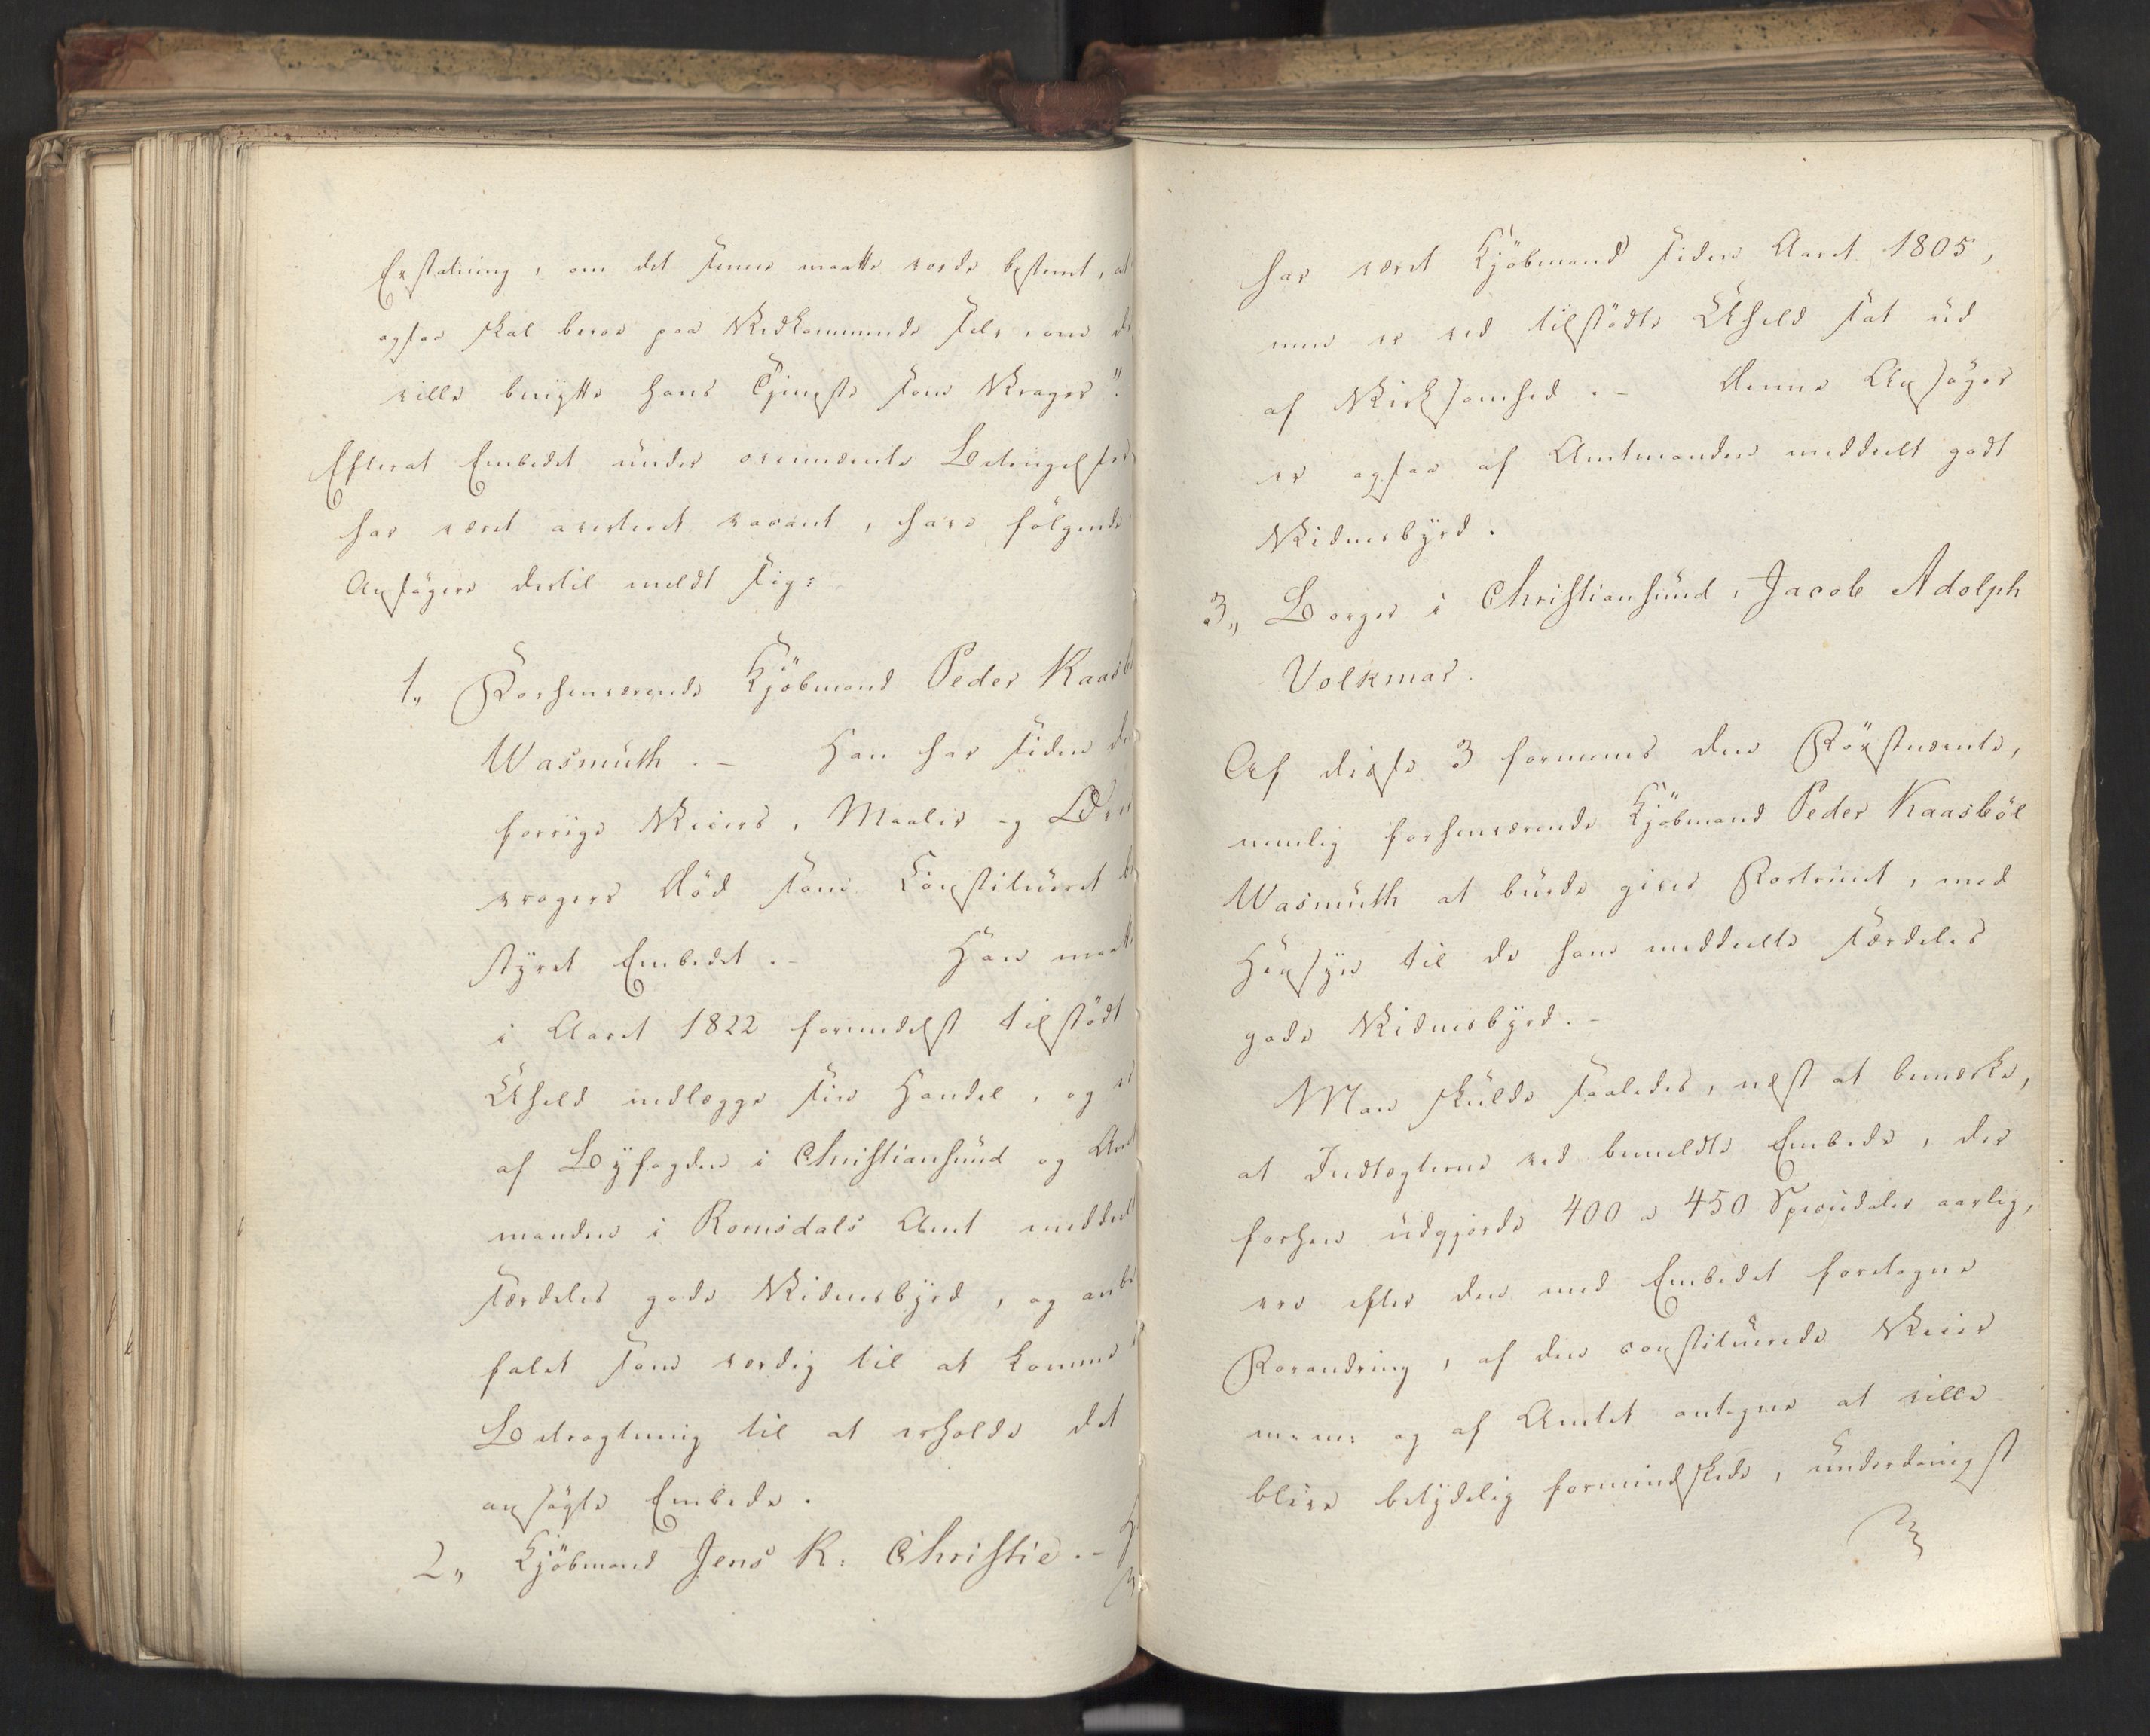 Erstatning, om det senere maatte vorde bestemt, at
ogsaa skal beroe paa Vedkommende selv, om de
ville benytte hans Tjeneste som Vrager".
Efterat Embedet under ovennævnte Betingelser
har været averteret vacant, have følgende
Ansøgere dertil meldt sig:
1., Forhenværende Kjöbmand Peder Kaasb
Wasmuth. – Han har siden den
forrige Veiers, Maalers og
vragers Död som Constitueret be
styret Embedet. – Han maatte
i Aaret 1822 formedelst tilstödt
Uheld nedlægge sin Handel, og er
af Byfogden i Christiansund og Amt
manden i Romsdals Amt meddeelt
særdeles gode Vidnesbyrd, og anbe
falet som værdig til at komme i
Betragtning til at erholde det
ansögte Embede.
2., Kjöbmand Jens K. Christie. –
har været Kjöbmand siden Aaret 1805,
men er ved tilstödte Uheld sat ud
af Virksomhed. – Denne Ansöger
er ogsaa af Amtmanden meddeelt godt
Vidnesbyrd.
3., Borger i Christiansund, Jacob Adolph
Volkmar.
Af disse 3 formenes den Förstnævnte,
nemlig forhenværende Kjöbmand Peder Kaasböl
Wasmuth at burde gives Fortrinet, med
Hensyn til de ham meddeelte særdeles
gode Vidnesbyrd. –
Man skulde saaledes, næst at bemærke,
at Indtægterne ved bemeldte Embede, der
forhen udgjorde 400 a 450 Speciedaler aarlig,
ere efter den med Embedet foretagne
Forandring, af den constituerede Veier
m: m: og af Amtet antagne at ville
blive betydelig formindskede, underdanigst